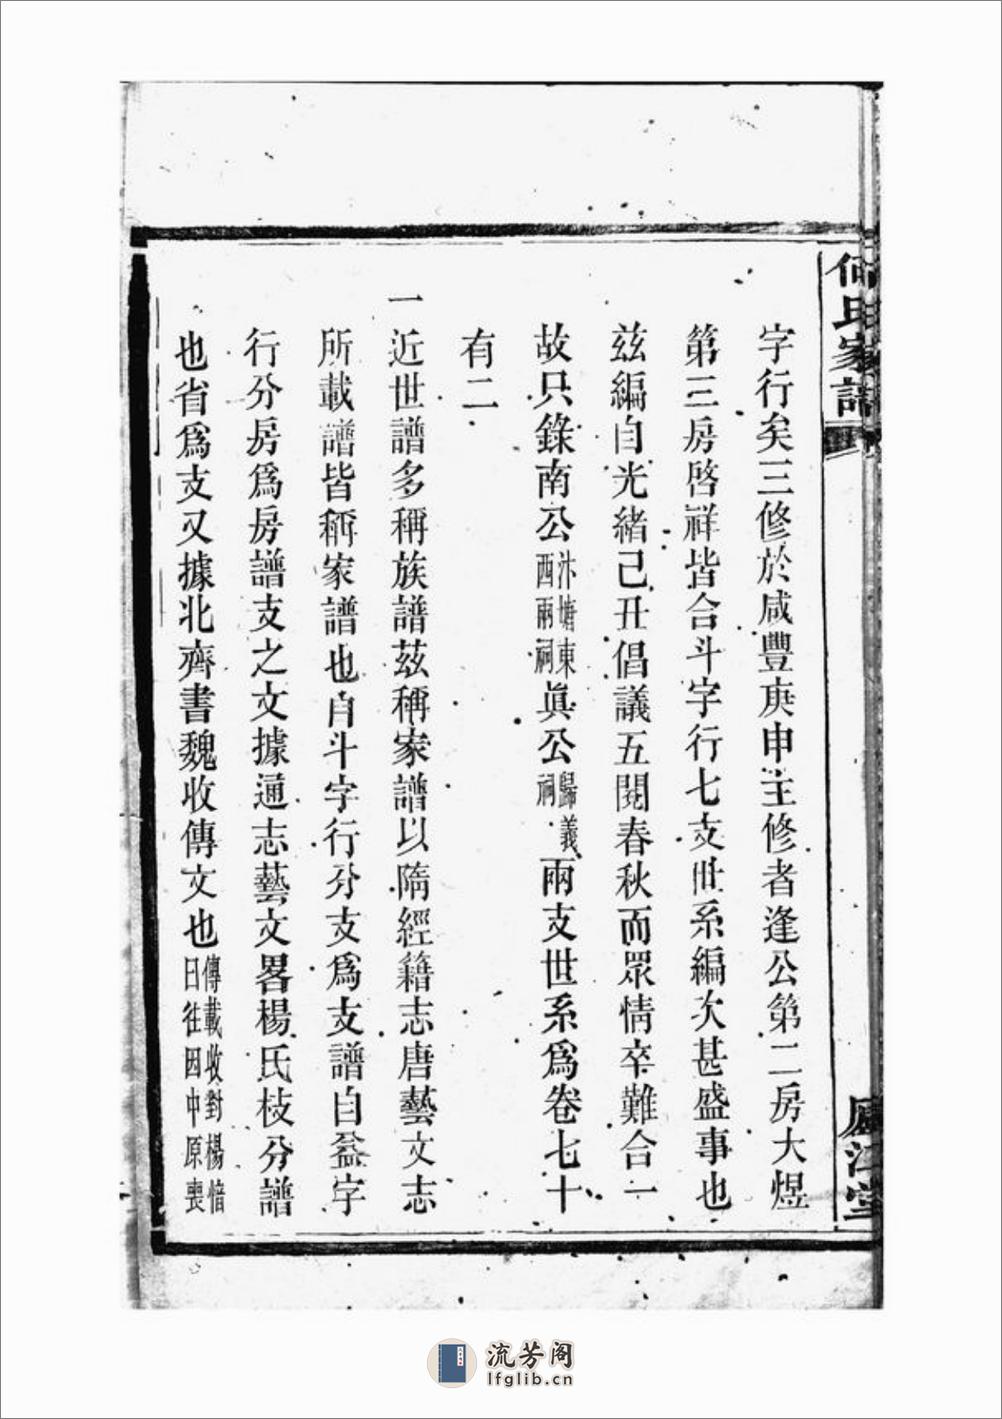 何氏家譜
廬江堂
字行矣三修於咸豐庚申主修者逢公第二房大煜
第三房啓祥皆合斗字行七支世系編次甚盛事也
茲編自光緒己丑倡議五閱春秋而眾情卒難合一
故只錄南公汴塘東西兩祠眞公歸義祠兩支世系爲卷七十
有二
一近世譜多稱族譜茲稱家譜以隋經籍志唐藝文志
所載譜皆稱家譜也自斗字行分支爲支譜自益字
行分房爲房譜支之文據通志藝文畧楊氏枝分譜
也省爲支又據北齊書魏收傳文也傳載收對楊愔曰往因中原喪
流芳阁
lfglib.cn